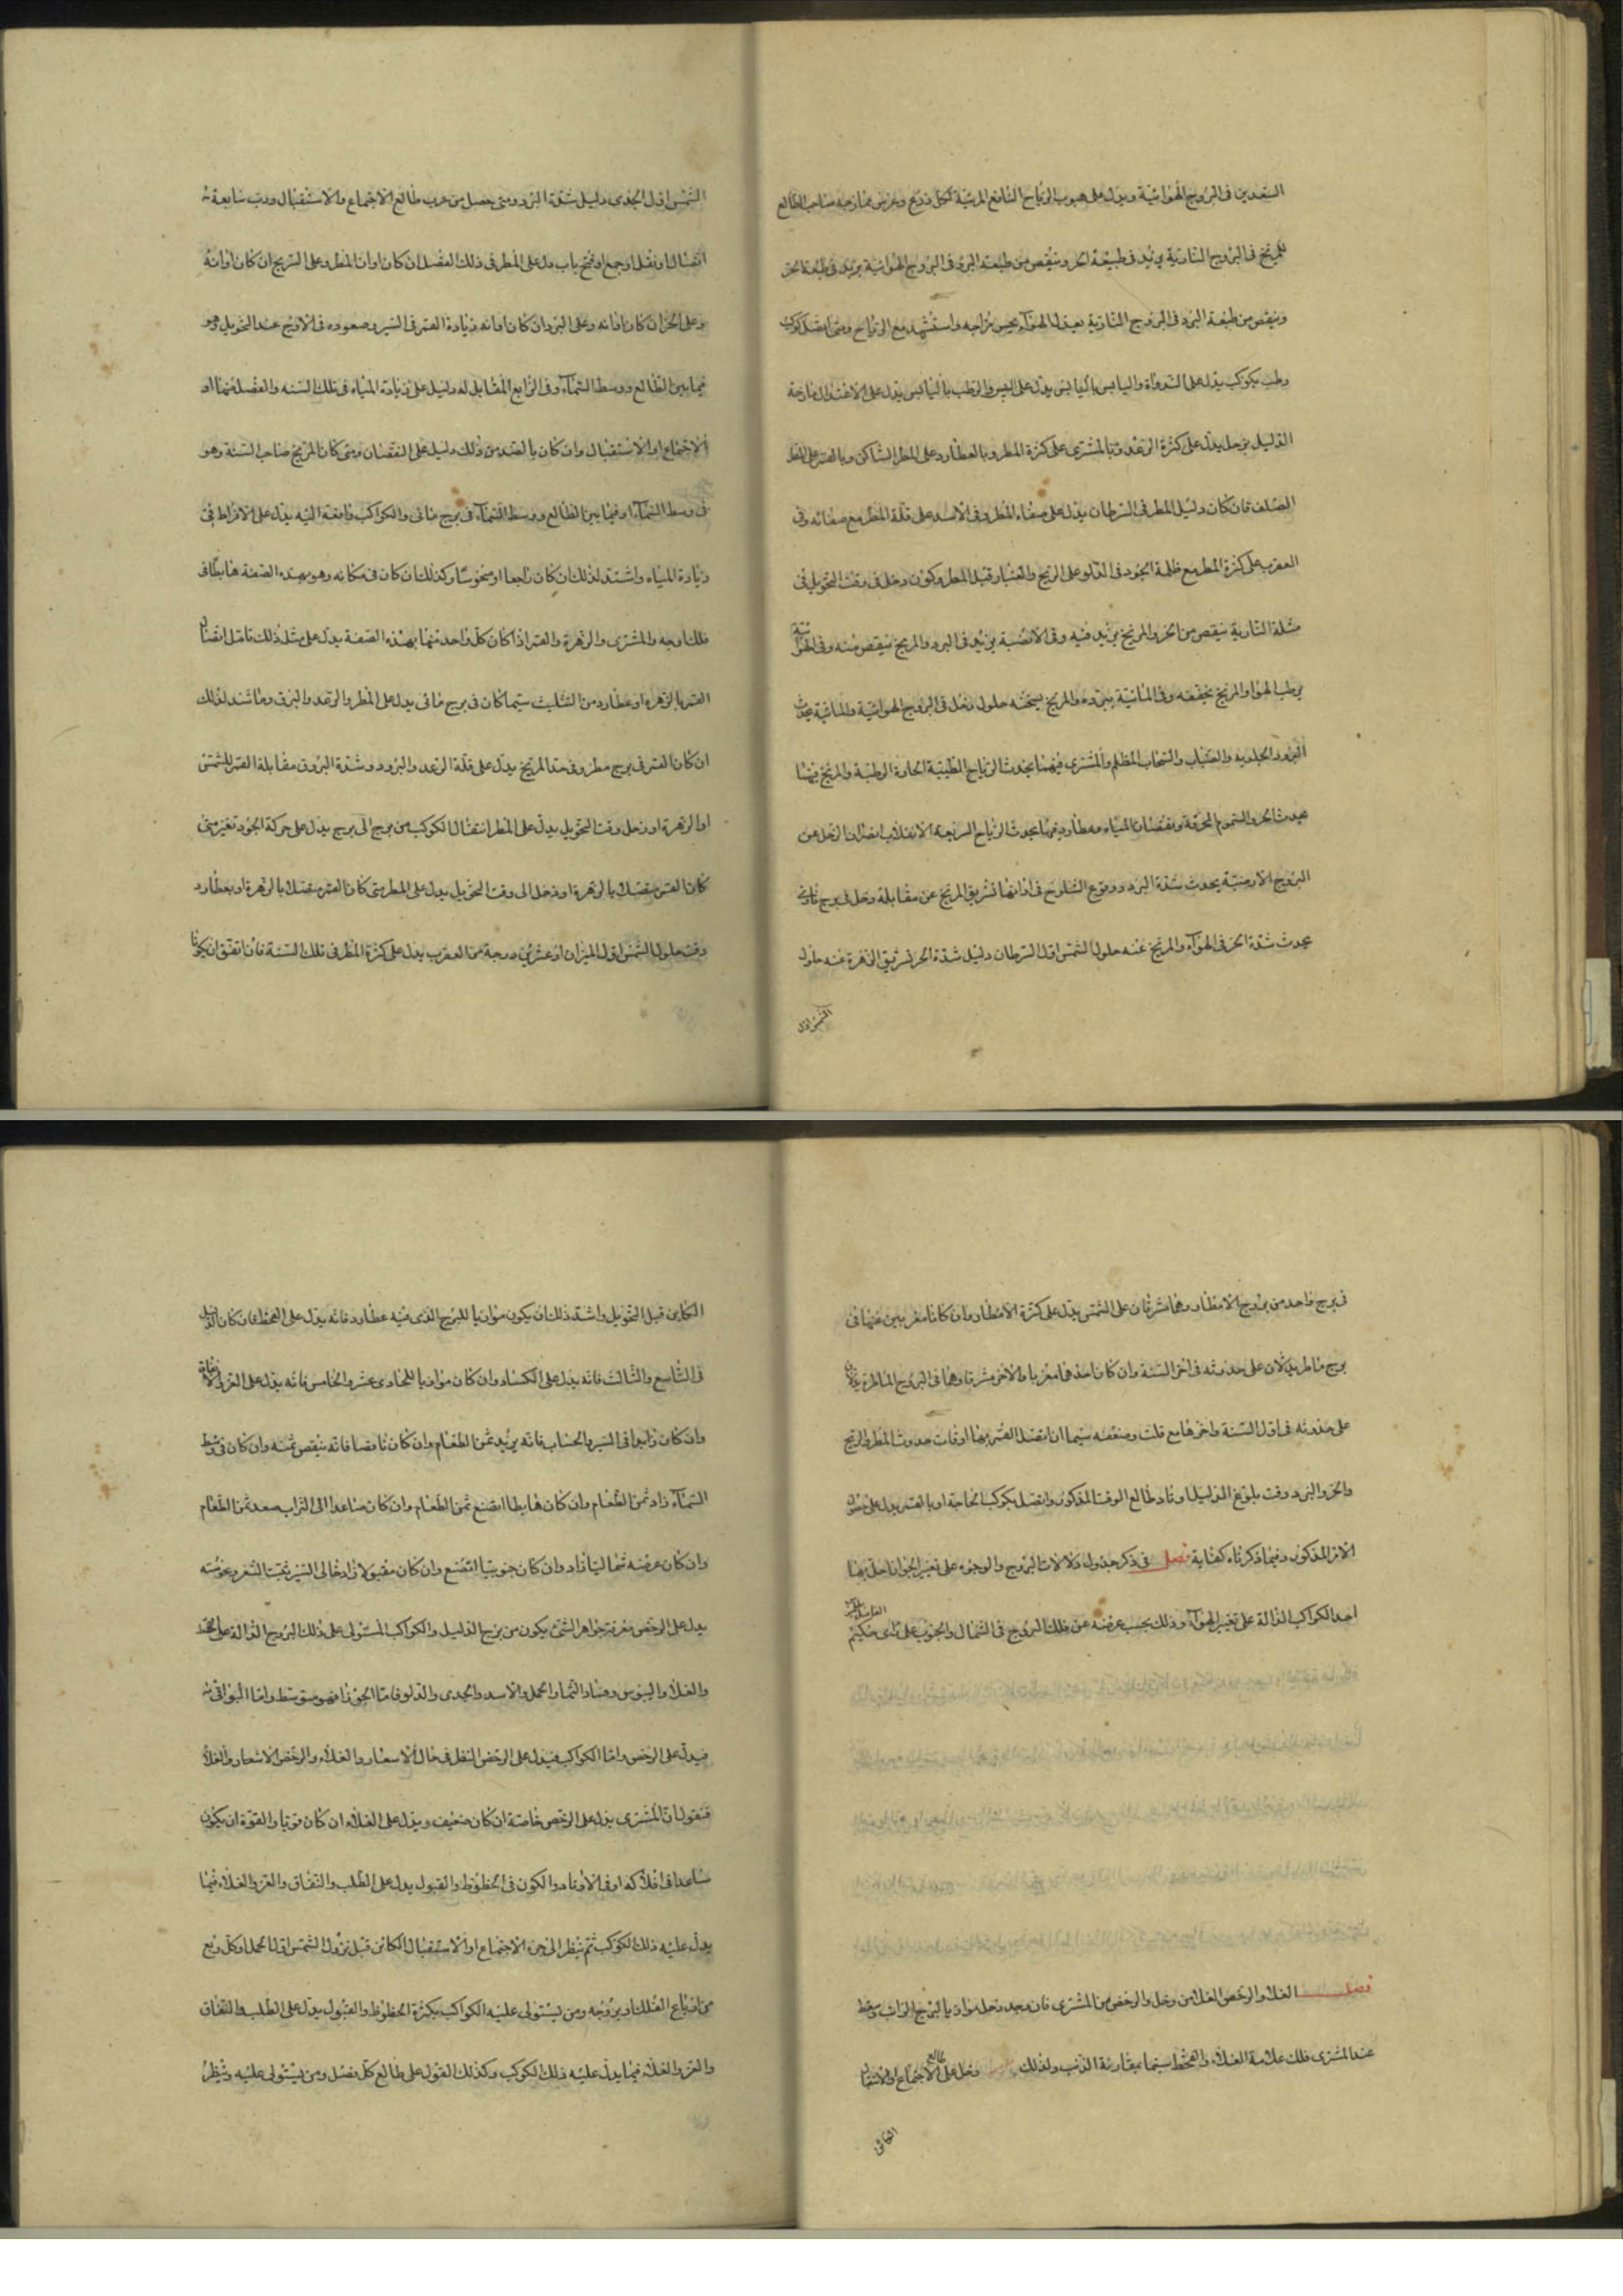 السعدين فى البروج الهوائية ويدل على هبوب الرياح النافع المربية لكل ذريع وغرس ممازجة صاحب الطالع
للمريخ فى البروج النارية يزيد فى طبيعة الحر وينقص من طبيعة البرد فى البروج الهوائية يزيد فى طبيعة الحر
وينقص من طبيعة البرد فى البروج النارية بعيد الهوآء بحسن مزاجه واستشهد مع الرياح ومتى اتصل كوكب
رطب بكوكب يدل على النداوة واليابس باليابس يدل على اليبس والرطب باليابس يدل على الاعتدال ممازجة
الدليل بزحل يدل على كثرة الرعد وبالمشترى على كثرة المطر وبالعطارد على المطر الساكن وبالقمر على المطر
الصلف فان كان دليل المطر فى السرطان يدل على صفاء المطر وفى الاسد على قلة المطر مع صفائه وفى
العقرب على كثرة المطر مع ظلمة الجو وفى الدلو على الريح والغبار قبل المطر وكون زحل فى وقت التحويل فى
مثلثة النارية ينقص من الحر والمريخ يزيد فيه وفى الارضية يزيد فى البرد والمريخ ينقص منه وفى الهوائية
يرطب الهوا والمريخ يجففه وفى المائية يبرده والمريخ يسخنه حلول زحل فى البروج الهوائية والمائية يحدث
البرود الجليدية والضباب والسحاب المظلم والمشترى فيهما يحدث الرياح الطيبة الحارة الرطبة والمريخ فيهما
يحدث الحر والسموم المحرقة ونقصان المياه وعطارد فيهما يحدث الرياح السريعة الانقلاب انصراف الزحل عن
البروج الارضية يحدث شدة البرد ووقوع الثلوح فى اوانها تشريق المريخ عن مقابلة زحل فى برج نارى
يحدث شدة الحر فى الهوآء والمريخ عنه حلول الشمس اول السرطان دليل شدة الحر تشريق الزهرة عنه حلول
الشمس اول
الشمس اول الجدى دليل شدة البرد ومتى حصل من غرب طالع الاجتماع والاستقبال ورب سابعة
اتصال او نقل او جمع او فتح باب دل على المطر فى ذلك الفصل ان كان اوان المطر وعلى الريح ان كان اوانه
وعلى الحر ان كان اوانه وعلى البرد ان كان اوانه زيادة القمر فى السير وصعوده فى الاوج عند التحويل وهو
فيما بين الطالع ووسط السمآء وفى الرابع المقابل له دليل على زيادة المياه فى تلك السنه والفصل منها او
الاجتماع او الاستقبال وان كان بالضد من ذلك دليل على النقصان ومتى كان المريخ صاحب السنة وهو
فى وسط السمآء او فيما بين الطالع ووسط السمآء فى برج مائى والكواكب دافعة اليه يدل على الافراط فى
زيادة المياه واشد لذلك ان كان راجعا او منحوسا وكذلك ان كان فى مكانه وهو بهذه الصفة هابطا فى
فلك اوجه والمشترى والزهرة والقمر اذا كان كل واحد منها بهذه الصفة يدل على مثل ذلك تامل اتصال
القمر بالزهرة او عطارد من التثليث سيما كان فى برج مائى يدل على المطر والرعد والبرق وما شد لذلك
ان كان القمر فى برج مطر وفى حد المريخ يدل على قلة الرعد والبرد وشدة البروق مقابلة القمر للشمس
او الزهرة او زحل وقت التحويل يدل على المطر انتقال الكوكب من برج الى برج يدل على حركة الجو وتغير متى
كان القمر متصلا بالزهرة او زحل الى وقت التحويل يدل على المطر متى كان القمر متصلا بالزهرة او بعطارد
وقت حلول الشمس اول الميزان او عشرين درجة من العقرب يدل على كثرة المطر فى تلك السنة فان اتفق ان يكونا
فى برج واحد من بروج الامطار وهما مشرقان على الشمس يدل على كثرة الامطار وان كانا مغربين عنها فى
برج ماطر يدلان على حدوثه فى اخر السنة وان كان احدهما مغربا والاخر مشرقا وهما فى البروج الماطرة يدلان
على حدوثه فى اول السنة واخرها مع قلت وضعفه سيما ان اتصل القمر بهما اوقات حدوث المطر والريح
والحر والبرد وقت بلوغ الدليل اوتاد طالع الوقت المذكور واتصل بكوكب الحاجة او بالقمر يدل على حصول
الامر المذكور وفيما ذكرناه كفاية فصل فى ذكر جدول دلالات البروج والوجوه على تغير الجو اذا حل بها
احد الكواكب الدالة على تغير الهوآء وذلك بحسب عرضه عن فلك البروج فى الشمال والجنوب على راى حكيم
فصل الغلا والرخص الغلا من زحل والرخص من المشترى فان وجد زحل موازيا لبرج الراس وسقط
عند المشترى فلك علامة الغلاء والقحط سيما بمقارنة الذنب ولذلك زحل على طالع الاجتماع او الاستقبال
الكائن
الكاين قبل التحويل واشد ذلك ان يكون موازيا للبرج الذى فيه عطارد فانه يدل على القحط فان كان الدليل
فى التاسع والثالث فانه يدل على الكساد وان كان موازيا للحادى عشر والخامس فانه يدل على العز
وان كان زايدا فى السير والحساب فانه يزيد ثمن الطعام وان كان ناقصا فانه ينقص ثمنه وان كان فى وسط
السمآء زاد ثمن الطعام وان كان هابطا اتضع ثمن الطعام وان كان صاعدا الى التراب صعد ثمن الطعام
وان كان عرضه شماليا زاد وان كان جنوبيا اتضع وان كان مقبولا زاد خالى السير ثبت السعر ونحوسته
يدل على الرخص معرفة جواهر الشئ يكون من برج الدليل والكواكب المستولى على ذلك البروج الدالة على القحط
والغلا واليبوس وفساد الثمار الحمل والاسد والجدى والدلو فاما الجوزا فهو متوسط واما البواقى
فيدل على الرخص واما الكواكب فيدل على الرخص النظر فى حال الاسعار والغلاء والرخص الاسعار والغلاء
فنقول ان المشترى يدل على الرخص خاصة ان كان ضعيف ويدل على الغلاء ان كان قويا والقوة ان يكون
صاعدا فى افلاكه او فى الاوتاد والكون فى الحظوظ والقبول يدل على الطلب والنفاق والعز والغلاء فيما
يدل عليه ذلك الكوكب ثم ينظر الى جزء الاجتماع او الاستقبال الكائن قبل نزول الشمس اول الحمل او كل ربع
من ارباع الفلك او بروجه ومن يستولى عليه الكواكب بكثرة الحظوظ والقبول يدل على الطلب والنفاق
والعز والغلاء فيما يدل عليه ذلك الكوكب وكذلك القول على طالع كل فصل ومن يستولى عليه وينظر